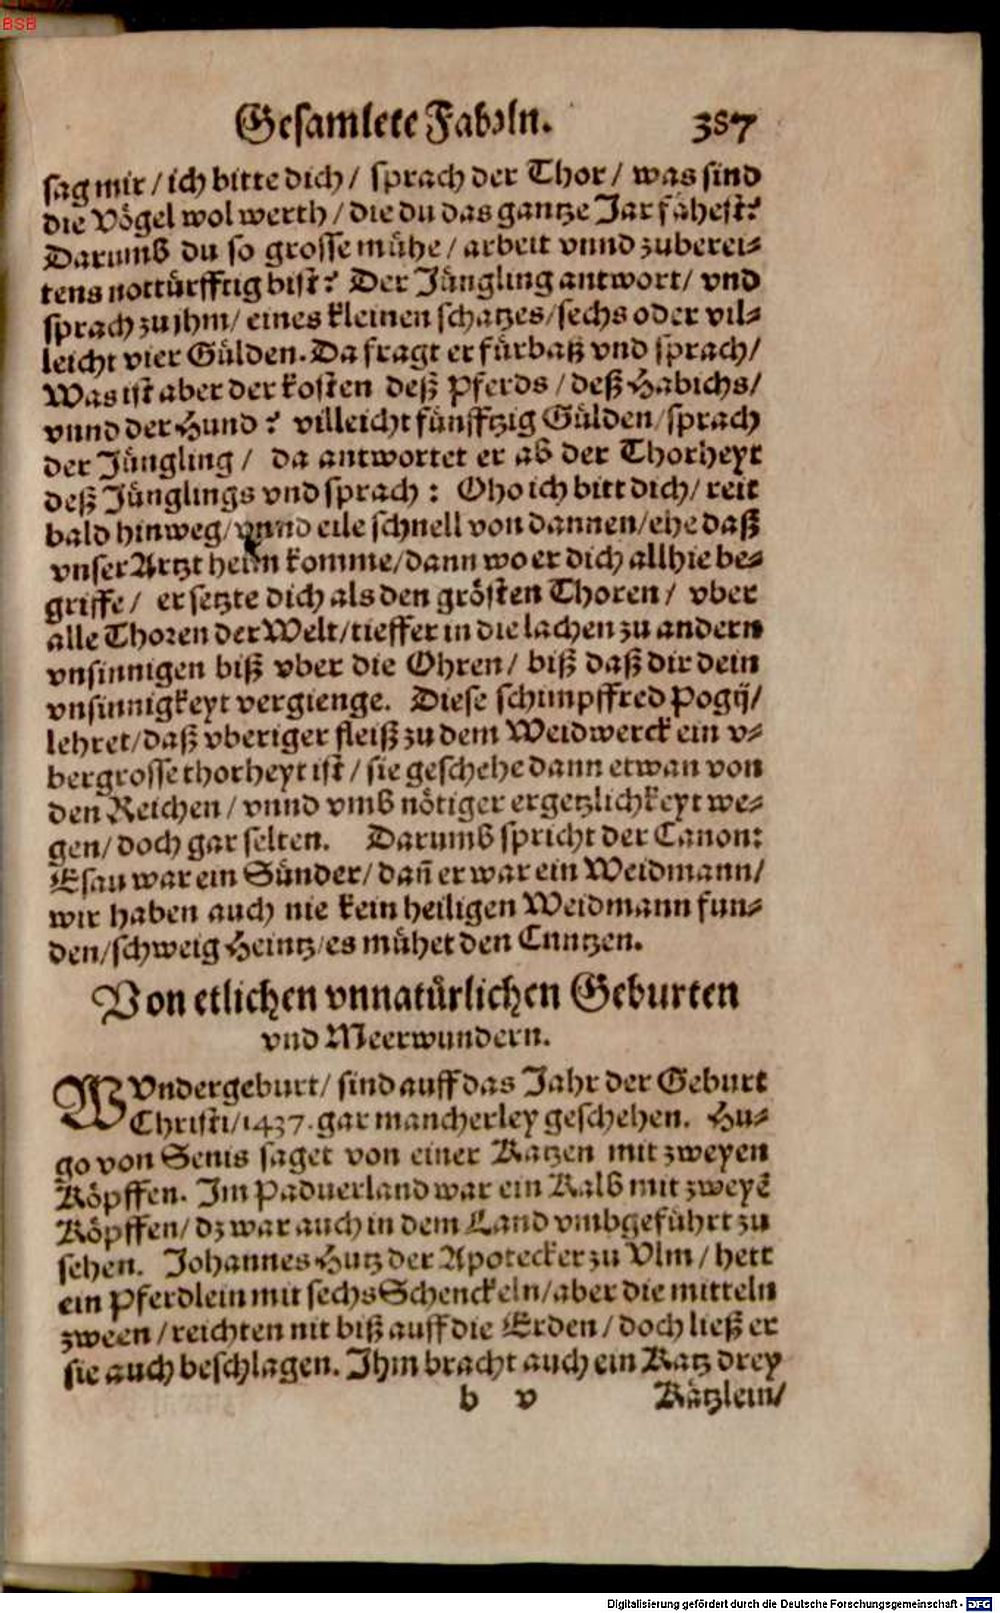 BSB
Gesamlete Fabeln. 387
sag mir / ich bitte dich / sprach der Thor / was sind
die Vögel wol werth / die du das gantze Jar fähest?
Darumb du so grosse mühe / arbeit vnnd zuberei-
tens nottürfftig bist? Der Jüngling antwort / vnd
sprach zu jhm / eines kleinen schatzes / sechs oder vil-
leicht vier Gülden. Da fragt er fürbaß vnd sprach /
Was ist aber der kosten deß Pferds / deß Habichs /
vnnd der Hund? villeicht fünfftzig Gülden / sprach
der Jüngling / da antwortet er ab der Thorheyt
deß Jünglings vnd sprach: Oho ich bitt dich / reit
bald hinweg / vnnd eile schnell von dannen / ehe daß
vnser Artzt heim komme / dann wo er dich allhie be-
griffe / er setzte dich als den grösten Thoren / vber
alle Thoren der Welt / tieffer in die lachen zu andern
vnsinnigen biß vber die Ohren / biß daß dir dein
vnsinnigkeyt vergienge. Diese schimpffred Pogij /
lehret / daß vberiger fleiß zu dem Weidwerck ein v-
bergrosse thorheyt ist / sie geschehe dann etwan von
den Reichen / vnnd vmb nötiger ergetzlichkeyt we-
gen / doch gar selten. Darumb spricht der Canon:
Esau war ein Sünder / dañ er war ein Weidmann /
wir haben auch nie kein heiligen Weidmann fun-
den / schweig Heintz / es mühet den Cuntzen.
Von etlichen vnnatürlichen Geburten
vnd Meerwundern.
WVndergeburt / sind auff das Jahr der Geburt
Christi / 1437. gar mancherley geschehen. Hu-
go von Senis saget von einer Katzen mit zweyen
Köpffen. Im Paduerland war ein Kalb mit zweyẽ
Köpffen / dz war auch in dem Land vmbgeführt zu
sehen. Johannes Hutz der Apotecker zu Vlm / hett
ein Pferdlein mit sechs Schenckeln / aber die mitteln
zween / reichten nit biß auff die Erden / doch ließ er
sie auch beschlagen. Ihm bracht auch ein Katz drey
b v Kätzlein /
Digitalisierung gefördert durch die Deutsche Forschungsgemeinschaft - DFG